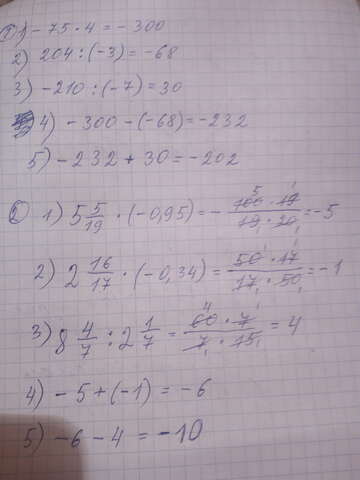 ① 1) - 75 · 4 = - 300
2) 204 : (-3) = -68
3) -210 : (-7) = 30
4) - 300 - (-68) = -232
5) - 232 + 30 = -202
② 1) 5 5/19 · (-0,95) = - 100 · 19 / 19 · 20 = -5
2) 2 16/17 · (-0,34) = 50 · 17 / 17 · 50 = -1
3) 8 4/7 : 2 1/7 = 60 · 7 / 7 · 15 = 4
4) - 5 + (-1) = -6
5) -6 - 4 = -10